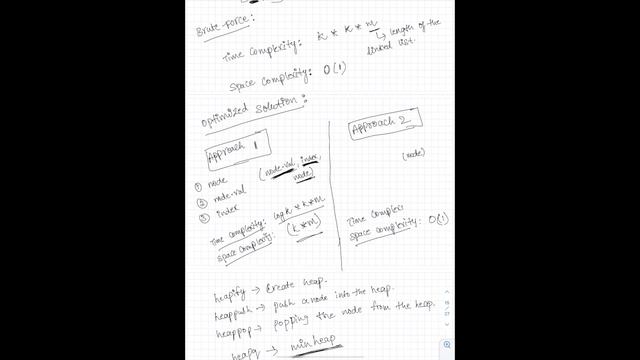 Brute-Force:
Time complexity: k * k * m
↳ length of the
linked list.
Space complexity: O(1)
optimized solution:
Approach 1
① node
② node-val
③ index
(node-val, index,
node)
Time complexity: log k * k*m
space complexity: (k*m)
Approach 2
(node)
Time complex:
space complexity: O(1)
heapify → create heap.
heappush → push a node into the heap.
heappop → popping the node from the heap.
heapq → min heap